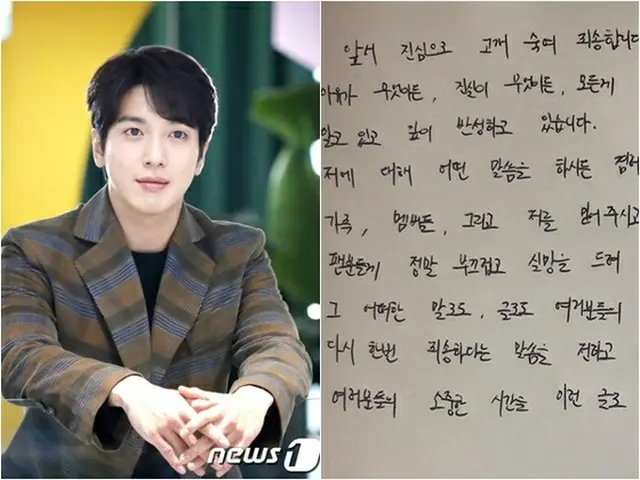 앞서 진심으로 고개 숙여 죄송합니다
이유가 무엇이든, 진실이 무엇이든, 모든게
알고 있고 깊이 반성하고 있습니다.
저에 대해 어떤 말씀을 하시든 겸허
가족, 멤버들, 그리고 저를 믿어주시고
팬분들께 정말 부끄럽고 실망을 드려
그 어떠한 말로도, 글로도 여러분들의
다시 한번 죄송하다는 말씀을 전하고
여러분들의 소중한 시간을 이런 글로
news1